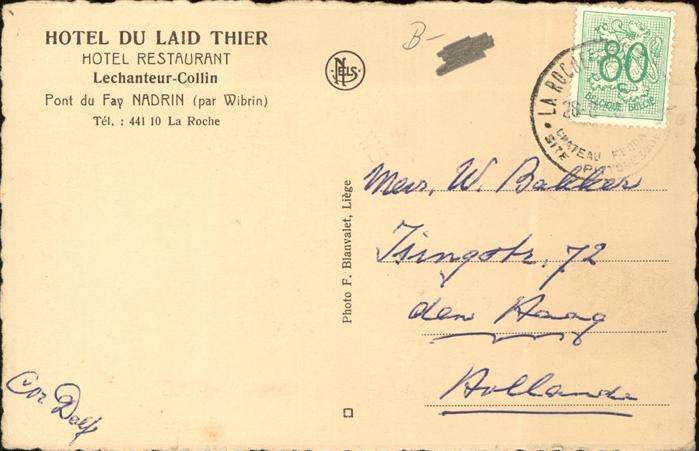 HOTEL DU LAID THIER
HOTEL RESTAURANT
Lechanteur-Collin
Pont du Fay NADRIN (par Wibrin)
Tél. : 441 10 La Roche
B-
NELS
80
BELGIQUE BELGIË
LA ROCHE
CHATEAU
SITE
Photo F. Blanvalet, Liège
Mevr. W. Bakker
72
den Haag
Hollande
Cor